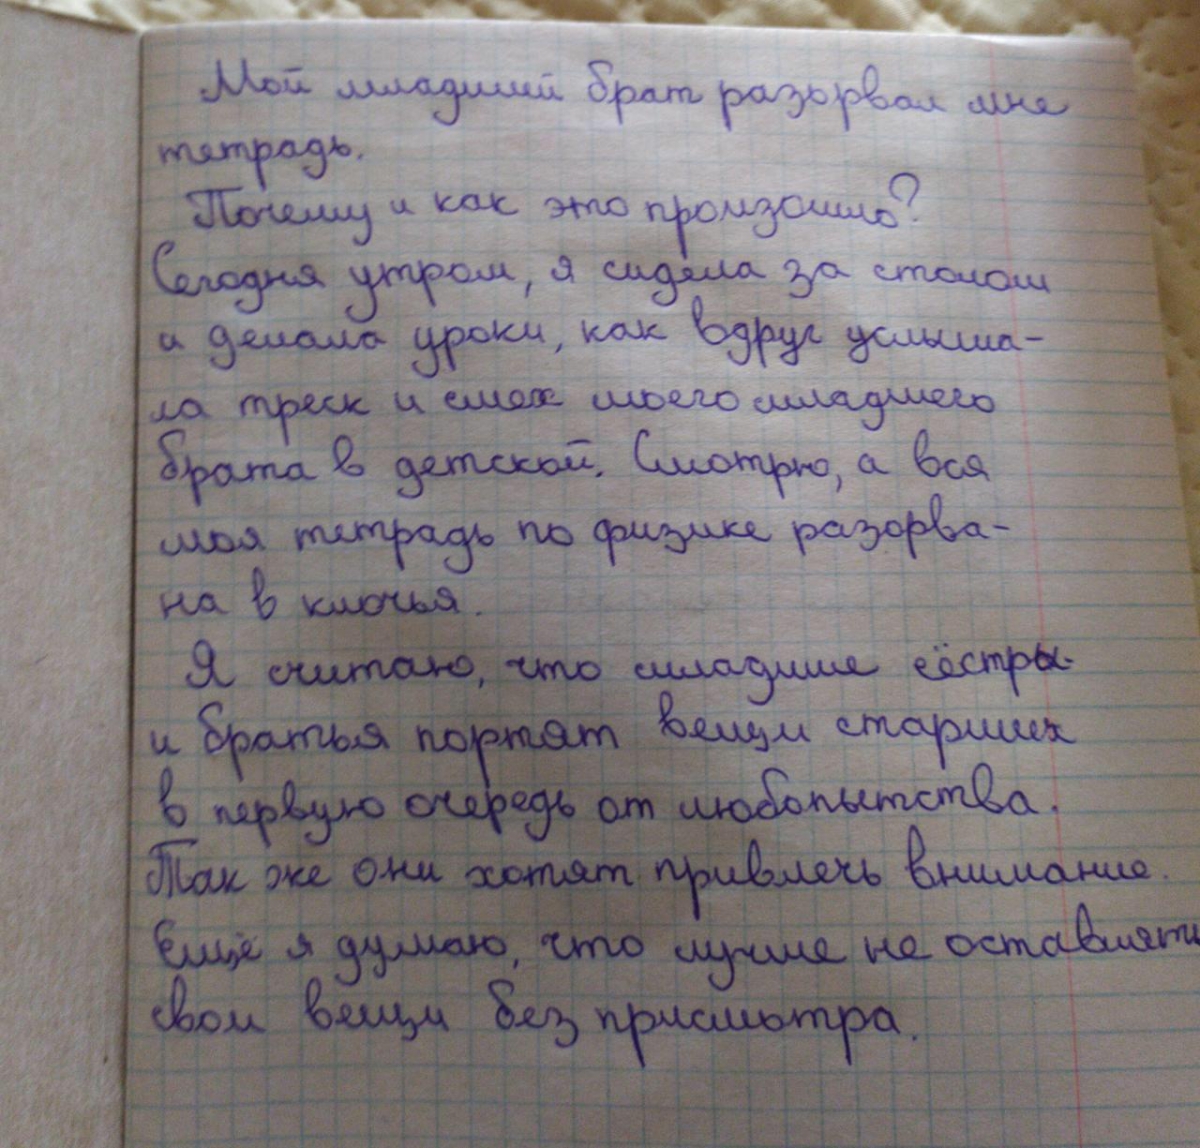 Мой младший брат разорвал мне
тетрадь.
Почему и как это произошло?
Сегодня утром, я сидела за столом
и делала уроки, как вдруг услыша-
ла треск и смех моего младшего
брата в детской. Смотрю, а вся
моя тетрадь по физике разорва-
на в клочья.
Я считаю, что младшие сёстры
и братья портят вещи старших
в первую очередь от любопытства.
Так же они хотят привлечь внимание.
Ещё я думаю, что лучше не оставлять
свои вещи без присмотра.